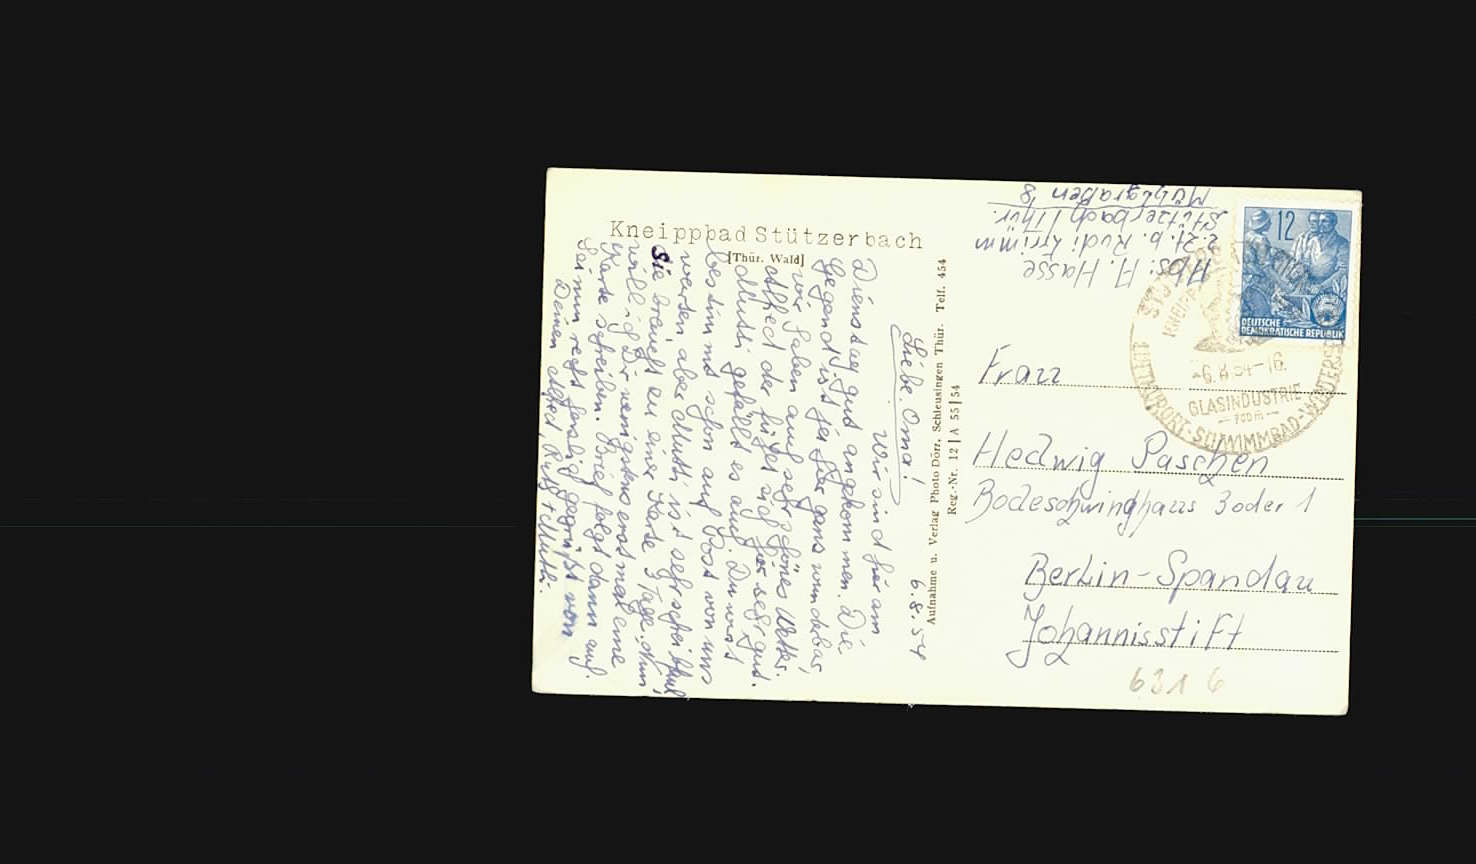 Kneippbad Stützerbach
[Thür. Wald]
6.8.54
Liebe Oma!
Wir sind hier am
Dienstag gut angekommen. Die
Gegend ist hier ganz wunderbar,
wir haben auch sehr schönes Wetter.
Alfred der fühlt sich hier sehr gut.
Mutti gefällt es auch. Du wirst
bestimmt schon auf Post von uns
warten, aber Mutti ist sehr schreibfaul,
Sie braucht zu einer Karte 3 Tage. Nun
will ich Dir wenigstens erst mal eine
Karte schreiben. Brief folgt dann auf.
Sei nun recht herzlich gegrüßt von
Deinen Alfred, Ruth + Mutti.
Aufnahme u. Verlag Photo Dörr, Schleusingen Thür. Telf. 454
Reg.-Nr. 12|A 55|54
Abs: A. Hasse
z. Zt. b. Rudi Grimm
Stützerbach/Thür.
Mühlgraben 8
12
DEUTSCHE
DEMOKRATISCHE REPUBLIK
-6.8.54-16
GLASINDUSTRIE
-700m-
LUFTKURORT-SCHWIMMBAD-WINTERS
Frau
Hedwig Paschen
Bodeschwinghaus 3 oder 1
Berlin-Spandau
Johannisstift
631 6